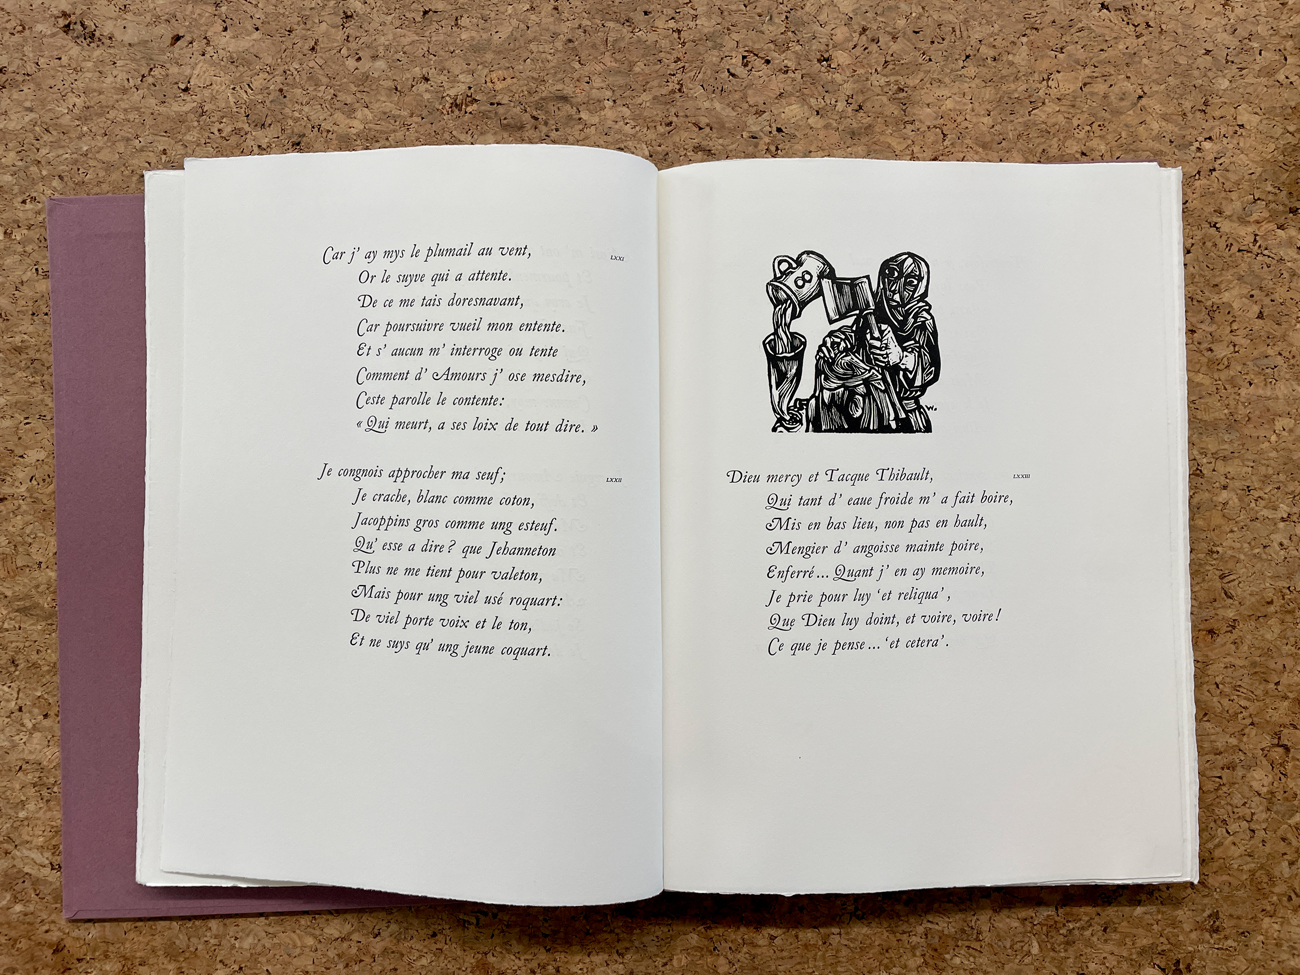 Car j' ay mys le plumail au vent, LXXI
Or le suyve qui a attente.
De ce me tais doresnavant,
Car poursuivre vueil mon entente.
Et s' aucun m' interroge ou tente
Comment d' Amours j' ose mesdire,
Ceste parolle le contente:
« Qui meurt, a ses loix de tout dire. »
Je congnois approcher ma seuf; LXXII
Je crache, blanc comme coton,
Jacoppins gros comme ung esteuf.
Qu' esse a dire? que Jehanneton
Plus ne me tient pour valeton,
Mais pour ung viel usé roquart:
De viel porte voix et le ton,
Et ne suys qu' ung jeune coquart.
W.
Dieu mercy et Tacque Thibault, LXXIII
Qui tant d' eaue froide m' a fait boire,
Mis en bas lieu, non pas en hault,
Mengier d' angoisse mainte poire,
Enferré... Quant j' en ay memoire,
Je prie pour luy 'et reliqua',
Que Dieu luy doint, et voire, voire!
Ce que je pense... 'et cetera'.